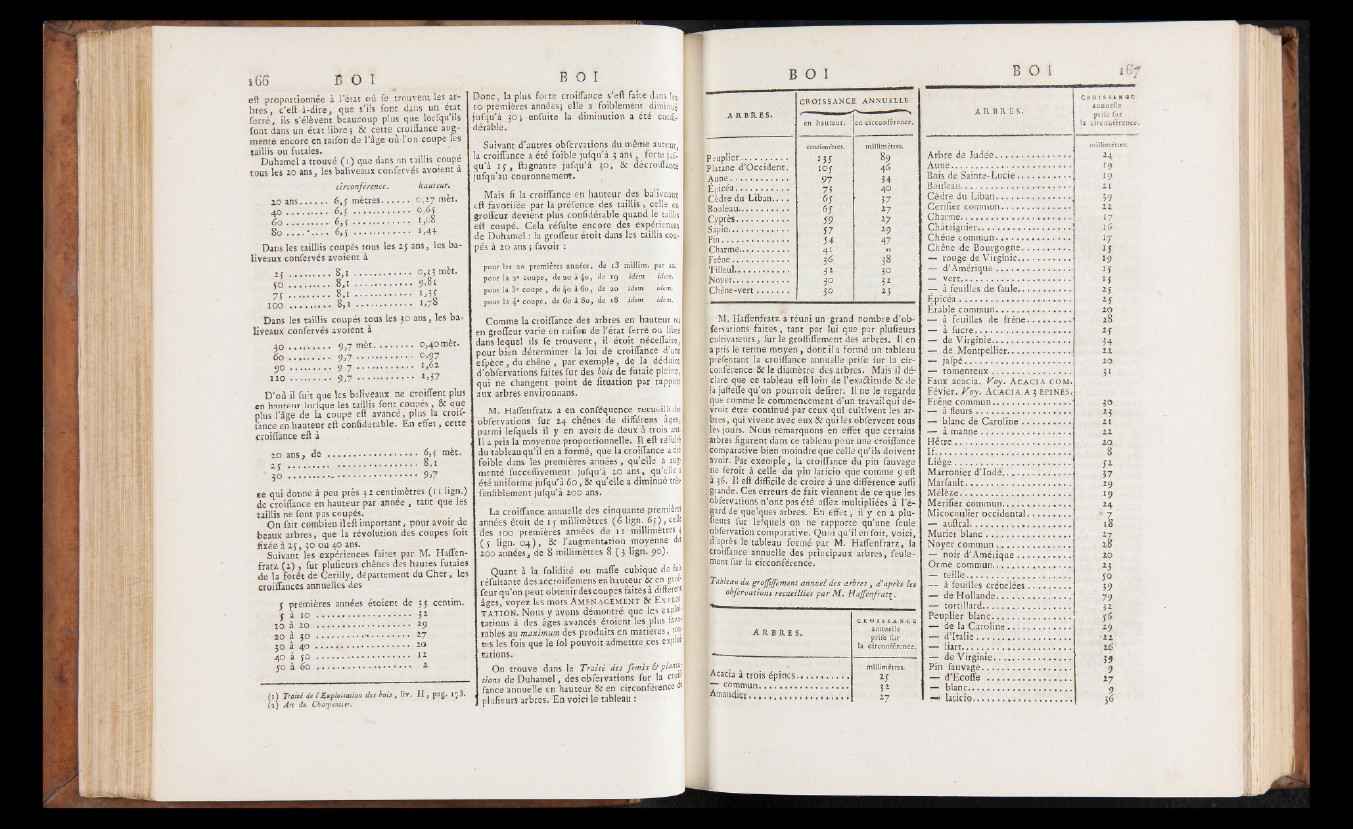 166 B O I
est proportionnée à l'état où se trouvent les ar-
bres, c'est-à-dire, que s'ils sont dans un état
serré, ils s'élèvent beaucoup plus que lorsqu'ils
sont dans un état libre; & cette croissance aug-
mente encore en raison de l'âge où l'on coupe les
taillis ou futaies.
Duhamel a trouvé (1) que dans un taillis coupé
tous les 20 ans, les baliveaux conservés avoient à
circonférence. hauteur.
20 ans...... 6,5 mètres...... 0,27 mèt.
40 .......... 6,5 ............ 0,65
60 .......... 6,5 ............ 1,08
80 .......... 6,5 ............ 1,44
Dans les taillis coupés tous les 25 ans, les ba-
liveaux conservés avoient à
25 .......... 8,1 ............ 0,33 mèt.
50 .......... 8,1 ............ 9,81
75 .......... 8,1 ............ 1,35
100 .......... 8,1 ............ 1,78
Dans les taillis coupés tous les 30 ans, les ba-
liveaux conservés avoient à
30 .......... 9,7 mèt......... 0,40 mèt.
60 .......... 9,7 ............ 0,97
90 .......... 9,7 ............ 1,62
120 .......... 9,7 ............ 2,37
D'où il suit que les baliveaux ne croissent plus
en hauteur lorsque les taillis sont coupés, & que
plus l'âge de la coupe est avancé, plus la crois-
sance en hauteur est considérable. En effet, cette
croissance est à
20 ans, de .................... 6,5 mèt.
25 ............................ 8,1
30 ............................ 9,7
ce qui donne à peu près 32 centimètres (11 lign.)
de croissance en hauteur par année, tant que les
taillis ne sont pas coupés.
On sait combien il est important, pour avoir de
beaux arbres, que la révolution des coupes soit
fixée à 25, 30 ou 40 ans.
Suivant les expériences faites par M. Hassen-
fratz (2), sur plusieurs chênes des hautes futaies
de la forêt de Cerilly, département du Cher, les
croissances annuelles des
5 premières années étoient de 35 centim.
5 à 10 ..................... 32
10 à 20 ..................... 29
20 à 30 ..................... 27
30 à 40 ..................... 20
40 à 50 ..................... 12
50 à 60 ..................... 2
(1) Traité de l'Exploitation des bois, liv. II, pag. 173.
(2) Art du Charpentier.
B O I
Donc, la plus forte croissance s'est faite dans les
10 premières années; elle a foiblement diminué
jusqu'à 30; ensuite la diminution a été consi-
dérable.
Suivant d'autres observations du même auteur,
la croissance a été foible jusqu'à 3 ans, forte jus-
qu'à 15, stagnante jusqu'à 30, & décroissante
jusqu'au couronnement.
Mais si la croissance en hauteur des baliveaux
est favorisée par la présence des taillis, celle en
grosseur devient plus considérable quand le taillis
est coupé. Cela résulte encore des expériences
de Duhamel: la grosseur étoit dans les taillis cou-
pés à 20 ans; savoir:
pour les 20 premières années, de 13 millim. par an.
pour la 2e coupe, de 20 à 40, de 19 idem idem.
pour la 3e coupe, de 40 à 60, de 20 idem idem.
pour la 4e coupe, de 60 à 80, de 18 idem idem.
Comme la croissance des arbres en hauteur ou
en grosseur varie en raison de l'état serré ou libre
dans lequel ils se trouvent, il étoit nécessaire,
pour bien déterminer la loi de croissance d'une
espèce, du chêne, par exemple, de la déduire
d'observations faites sur des bois de futaie pleine,
qui ne changent point de situation par rapport
aux arbres environnans.
M. Hassenfratz a en conséquence recueilli des
observations sur 24 chênes de différens âges,
parmi lesquels il y en avoit de deux à trois ans.
Il a pris la moyenne proportionnelle. Il est résulté
du tableau qu'il en a formé, que la croissance a été
foible dans les premières années, qu'elle a aug-
menté successivement jusqu'à 20 ans, qu'elle a
été uniforme jusqu'à 60, & qu'elle a diminué très-
sensiblement jusqu'à 200 ans.
La croissance annuelle des cinquante premières
années étoit de 15 millimètres (6 lign. 65), celle
des 100 premières années de 11 millimètres 4
(5 lign. 04), & l'augmentation moyenne des
200 années, de 8 millimètres 8 (3 lign. 90).
Quant à la solidité ou masse cubique de bois
résultante des accroissemens en hauteur & en gros-
seur qu'on peut obtenir des coupes faites à différens
âges, voyez les mots AMÉNAGEMENT & EXPLOI-
TATION. Nous y avons démontré que les exploi-
tations à des âges avancés étoient les plus favo-
rables au maximum des produits en matières, tou-
tes les fois que le sol pouvoit admettre ces exploi-
tations.
On trouve dans le Traité des semis & planta-
tions de Duhamel, des observations sur la crois-
sance annuelle en hauteur & en circonférence de
plusieurs arbres. En voici le tableau:
B O I
ARBRES. CROISSANCE ANNUELLE
en hauteur. en circonférence.
centimètres. millimètres.
Peuplier.......... 135 89
Platane d'Occident. 105 46
Aune............ 97 54
Épicéa........... 73 40
Cèdre du Liban.... 65 37
Bouleau.......... 65 27
Cyprès........... 59 27
Sapin............ 57 29
Pin.............. 54 47
Charme.......... 41 »
Frêne............ 36 38
Tilleul........... 32 30
Noyer........... 30 32
Chêne-vert....... 30 23
M. Hassenfratz a réuni un grand nombre d'ob-
servations faites, tant par lui que par plusieurs
cultivateurs, sur le grossissement des arbres. Il en
a pris le terme moyen, dont il a formé un tableau
présentant la croissance annuelle prise sur la cir-
conférence & le diamètre des arbres. Mais il dé-
clare que ce tableau est loin de l'exactitude & de
la justesse qu'on pourroit desirer. Il ne le regarde
que comme le commencement d'un travail qui de-
vroit être continué par ceux qui cultivent les ar-
bres, qui vivent avec eux & qui les observent tous
les jours. Nous remarquons en effet que certains
arbres figurent dans ce tableau pour une croissance
comparative bien moindre que celle qu'ils doivent
avoir. Par exemple, la croissance du pin sauvage
ne seroit à celle du pin laricio que comme 9 est
à 36. Il est difficile de croire à une différence aussi
grande. Ces erreurs de fait viennent de ce que les
observations n'ont pas été assez multipliées à l'é-
gard de quelques arbres. En effet, il y en a plu-
sieurs sur lesquels on ne rapporte qu'une seule
observation comparative. Quoi qu'il en soit, voici,
d'après le tableau formé par M. Hassenfratz, la
croissance annuelle des principaux arbres, seule-
ment sur la circonférence.
Tableau du grossissement annuel des arbres, d'après les
observations recueillies par M. Hassenfratz.
ARBRES. CROISSANCE
annuelle
prise sur
la circonférence.
millimètres.
Acacia à trois épines........... 25
— commun................... 32
Amandier.................... 27
B O I 167
ARBRES. CROISSANCE
annuelle
prise sur
la circonférence.
millimètres.
Arbre de Judée................ 24
Aune....................... 19
Bois de Sainte-Lucie........... 19
Bouleau..................... 21
Cèdre du Liban............... 39
Cerisier commun.............. 22
Charme..................... 17
Châtaignier.................. 16
Chêne commun............... 17
Chêne de Bourgogne.......... 15
— rouge de Virginie........... 19
— d'Amérique................ 15
— vert...................... 15
— à feuilles de saule........... 25
Épicéa...................... 25
Érable commun............... 20
— à feuilles de frêne.......... 28
— à sucre................... 25
— de Virginie................ 34
— de Montpellier............. 22
— jaspé..................... 20
— tomenteux................ 31
Faux acacia. Voy. ACACIA COM.
Févier. Voy. ACACIA A 3 EPINES.
Frêne commun............... 30
— à fleurs................... 23
— blanc de Caroline........... 21
— à manne.................. 22
Hêtre....................... 20
If.......................... 8
Liége....................... 52
Marronier d'Inde.............. 37
Marsault.................... 29
Mélèze...................... 19
Mérisier commun.............. 24
Micocoulier occidental......... 7
— austral.................... 18
Murier blanc................. 27
Noyer commun............... 28
— noir d'Amérique............ 20
Orme commun............... 23
— teille..................... 50
— à feuilles crénelées.......... 39
— de Hollande................ 79
— tortillard.................. 32
Peuplier blanc................ 56
— de la Caroline.............. 29
— d'Italie.................... 22
— liart...................... 26
— de Virginie................ 39
Pin sauvage.................. 9
— d'Ecosse.................. 27
— blanc..................... 9
— laricio.................... 36